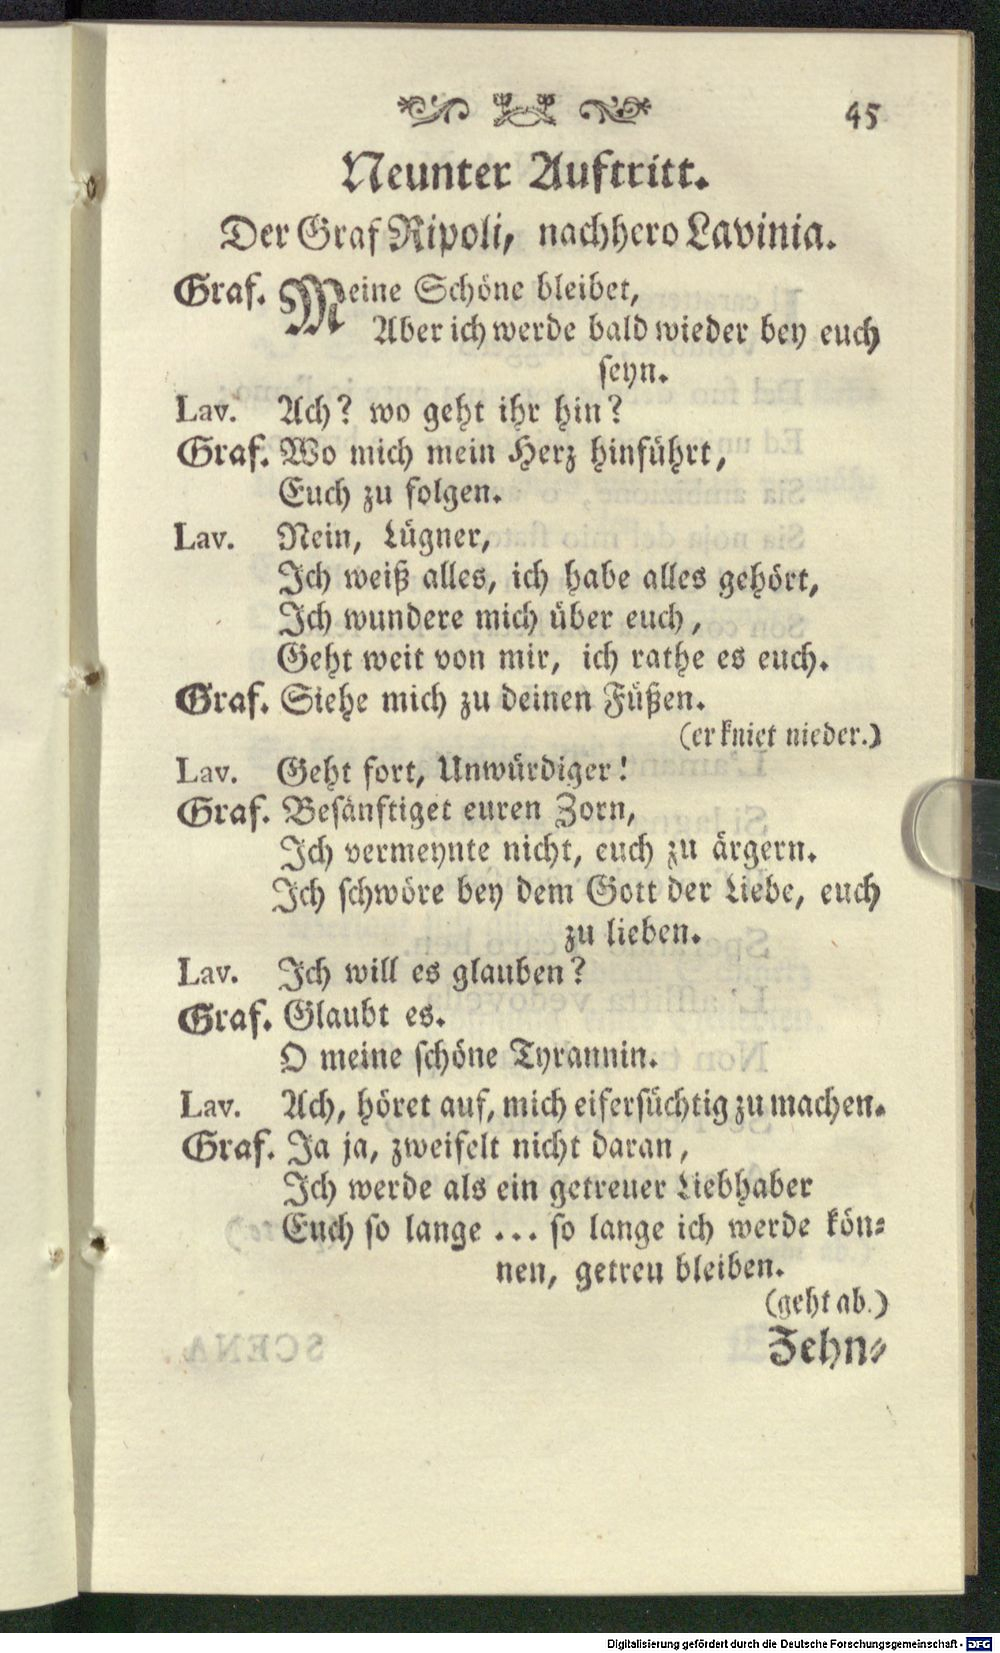 45
Neunter Auftritt.
Der Graf Ripoli, nachhero Lavinia.
Graf. Meine Schöne bleibet,
Aber ich werde bald wieder bey euch
seyn.
Lav. Ach? wo geht ihr hin?
Graf. Wo mich mein Herz hinführt,
Euch zu folgen.
Lav. Nein, Lügner,
Ich weiß alles, ich habe alles gehört,
Ich wundere mich über euch,
Geht weit von mir, ich rathe es euch.
Graf. Siehe mich zu deinen Füßen.
(er kniet nieder.)
Lav. Geht fort, Unwürdiger!
Graf. Besänftiget euren Zorn,
Ich vermeynte nicht, euch zu ärgern.
Ich schwöre bey dem Gott der Liebe, euch
zu lieben.
Lav. Ich will es glauben?
Graf. Glaubt es.
O meine schöne Tyrannin.
Lav. Ach, höret auf, mich eifersüchtig zu machen.
Graf. Ja ja, zweifelt nicht daran,
Ich werde als ein getreuer Liebhaber
Euch so lange ... so lange ich werde kön-
nen, getreu bleiben.
(geht ab.)
Zehn-
Digitalisierung gefördert durch die Deutsche Forschungsgemeinschaft - DFG